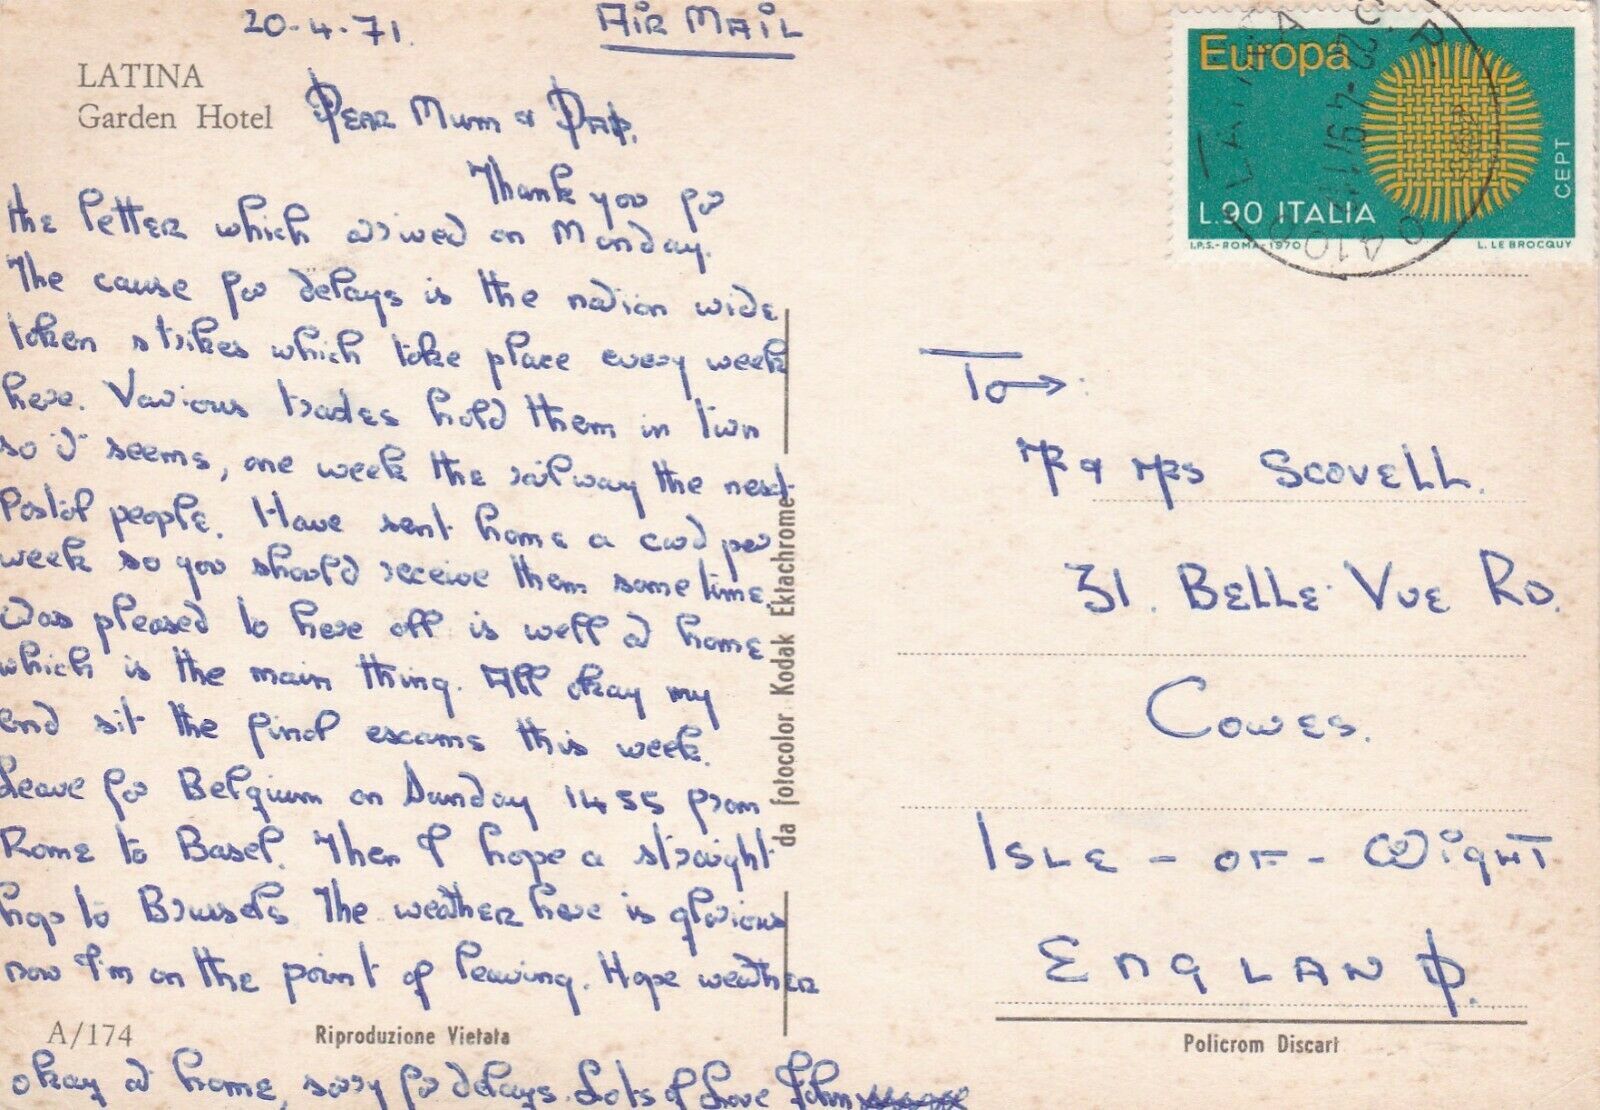 20-4-71.
AIR MAIL
LATINA
Garden Hotel
Dear Mum & Dad,
Thank you for
the letter which arrived on Monday.
The cause for delays is the nation wide
token strikes which take place every week
here. Various trades hold them in turn
so it seems, one week the railway the next
Postal people. Have sent home a card per
week so you should receive them sometime.
Was pleased to here all is well at home
which is the main thing. All okay my
end sit the final exams this week.
Leave for Belgium on Sunday 1455 from
Rome to Basel. Then I hope a straight
hop to Brussels. The weather here is glorious
now I'm on the point of leaving. Hope weather
A/174
Riproduzione Vietata
okay at home, sorry for delays. Lots of Love John
da fotocolor Kodak Ektachrome
Europa
CEPT
L.90 ITALIA
I.P.S.-ROMA-1970
L. LE BROCQUY
LATINA
22-4 71
To→:
Mr & Mrs Scovell.
31. Belle-Vue Rd.
Cowes.
Isle-of-Wight
England.
Policrom Discart